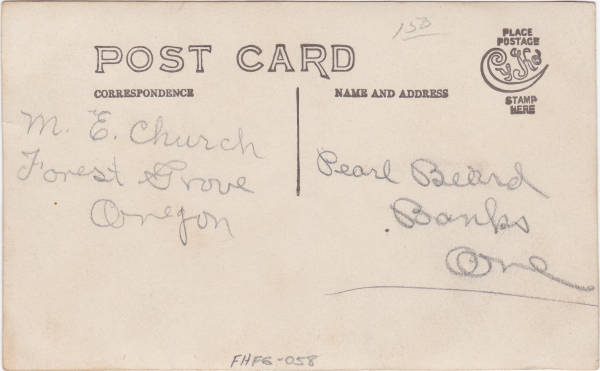 150
PLACE
POSTAGE
STAMP
HERE
POST CARD
CORRESPONDENCE
NAME AND ADDRESS
M. E. Church
Forest Grove
Oregon
Pearl Beard
Banks
Ore
FHFG-058